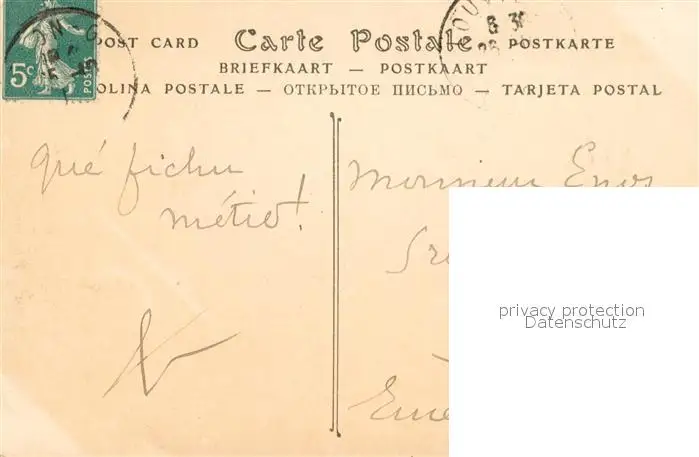 5c
POST CARD Carte Postale POSTKARTE
BRIEFKAART — POSTKAART
OLINA POSTALE — ОТКРЫТОЕ ПИСЬМО — TARJETA POSTAL
Qué fichu
métier!
Monsieur
privacy protection
Datenschutz